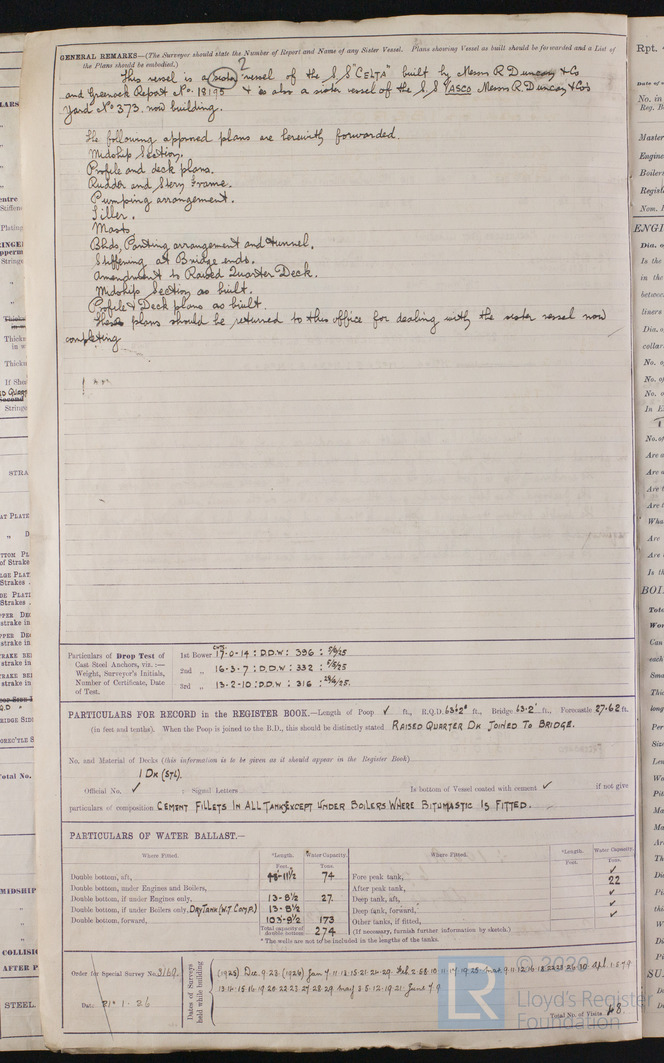 GENERAL REMARKS—(The Surveyor should state the Number of Report and Name of any Sister Vessel. Plans showing Vessel as built should be forwarded and a List of
the Plans should be embodied.)
2
This vessel is a sister vessel of the S.S "CELTA" built by Messrs R. Duncan & Co
and Greenock Report No. 18195 & is also a sister vessel of the S.S ASCO Messrs R. Duncan & Co's
Yard No 373. now building.
The following approved plans are herewith forwarded.
Midship Section.
Profile and deck plans.
Rudder and Stern Frame.
Pumping arrangement.
Tiller.
Masts
Bhds, Panting arrangement and tunnel.
Stiffening at Bridge ends.
Amendment to Raised Quarter Deck.
Midship Section as built.
Profile & Deck plans as built.
These plans should be returned to this office for dealing with the sister vessel now
completing
Particulars of Drop Test of
Cast Steel Anchors, viz. :—
Weight, Surveyor's Initials,
Number of Certificate, Date
of Test.
1st Bower 17-0-14 : D.D.W : 396 :
2nd „ 16-3-7 : D.D.W : 332 :
3rd „ 13-2-10 : D.D.W : 316 :
PARTICULARS FOR RECORD in the REGISTER BOOK.—Length of Poop ✓ ft., R.Q.D. ft., Bridge 63-2 ft., Forecastle 27.62 ft.
(in feet and tenths). When the Poop is joined to the B.D., this should be distinctly stated RAISED QUARTER DK JOINED TO BRIDGE.
No. and Material of Decks (this information is to be given as it should appear in the Register Book)
1 DK (STL).
Official No. ✓ : Signal Letters Is bottom of Vessel coated with cement ✓ if not give
particulars of composition CEMENT FILLETS IN ALL TANKS EXCEPT UNDER BOILERS WHERE BITUMASTIC IS FITTED.
PARTICULARS OF WATER BALLAST.—
Where Fitted. *Length. Water Capacity. Where Fitted. *Length. Water Capacity.
Feet. Tons. Feet. Tons.
Double bottom, aft, 48-11½ 74 Fore peak tank, ✓
Double bottom, under Engines and Boilers, After peak tank, 22
Double bottom, if under Engines only, 13-8½ 27 Deep tank, aft, ✓
Double bottom, if under Boilers only, DRY TANK (W.T COMP.) 13-8½ Deep tank, forward, ✓
Double bottom, forward, 103-9½ 173 Other tanks, if fitted, ✓
Total capacity of double bottom 274 (If necessary, furnish further information by sketch.)
* The wells are not to be included in the lengths of the tanks.
Order for Special Survey No. 3169
Date 21. 1. 26
Dates of Surveys
held while building
(1925) Dec. 9. 23. (1926) Jan 7. 11. 13. 15. 21. 26. 29. Feb
13. 14. 15. 16. 19. 20. 22. 23. 27. 28. 29. May 3. 5. 12. 19. 21. June 7. 9
Total No. of Visits 48.
© 2020
LR
Lloyd's Register
Foundation